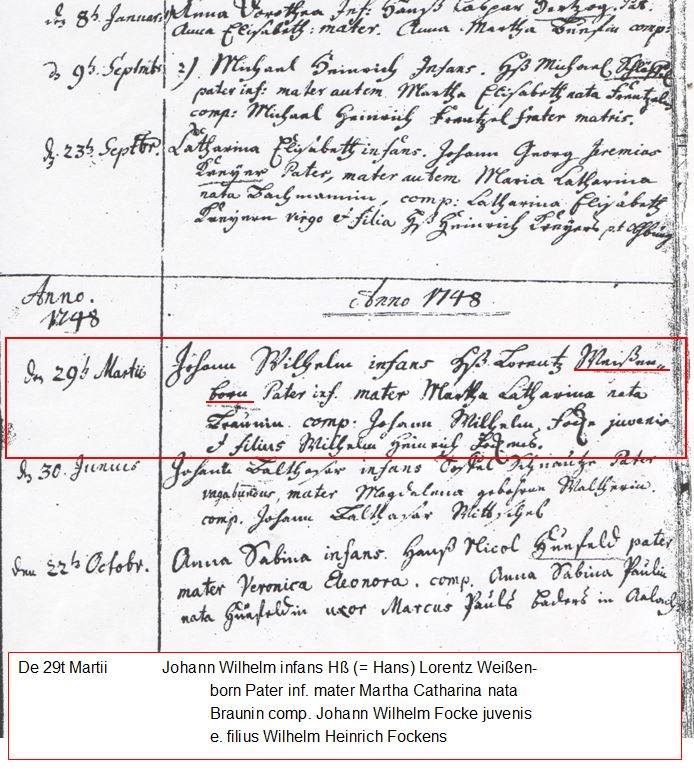 den 8t Januarii Anna Dorothea Inf: Hanß Caspar Hertzog Pat:
Anna Elisabeth: mater. Anna Martha comp:
d 9t Septmb: 2) Michael Heinrich Infans. Hß Michael
pater inf: mater autem Martha Elisabeth nata Frentzeln
comp: Michael Heinrich Frentzel frater matris.
d 23t Septbr. Catharina Elisabeth infans. Johann Georg Jeremias
Kreyer Pater, mater autem Maria Catharina
nata Bachmannin, comp: Catharina Elisabeth
Kreyern virgo & filia Hß Heinrich Kreyers
Anno. Anno 1748
1748
den 29t Martii Johann Wilhelm infans Hß Lorentz Weißen-
born Pater inf. mater Martha Catharina nata
Braunin. comp: Johann Wilhelm Focke juvenis
& filius Wilhelm Heinrich Fockens.
d 30. Junius Johann Balthasar infans Pater
vagabundus, mater Magdalena gebohrne Waltherin.
comp. Johann Balthasar
den 22t Octobr. Anna Sabina infans. Hanß Nicol Hunfeld pater
mater Veronica Eleonora. comp. Anna Sabina Paulin
nata Hunfeldin uxor Marcus Pauls baders in
De 29t Martii Johann Wilhelm infans Hß (= Hans) Lorentz Weißen-
born Pater inf. mater Martha Catharina nata
Braunin comp. Johann Wilhelm Focke juvenis
e. filius Wilhelm Heinrich Fockens